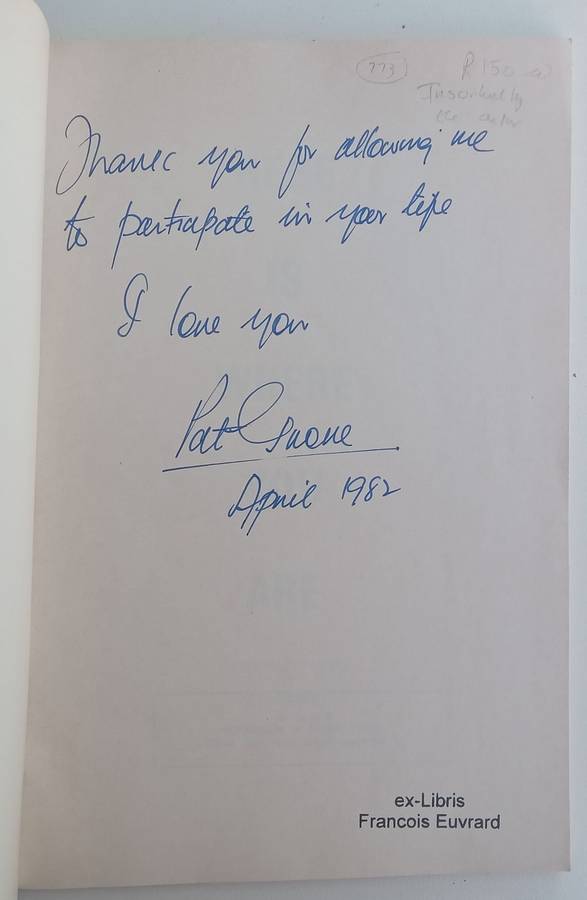 773
R150
Inscribed by
Thank you for allowing me
to participate in your life
I love you
Pat Grove
April 1982
IS
WHERE
ARE
ex-Libris
Francois Euvrard